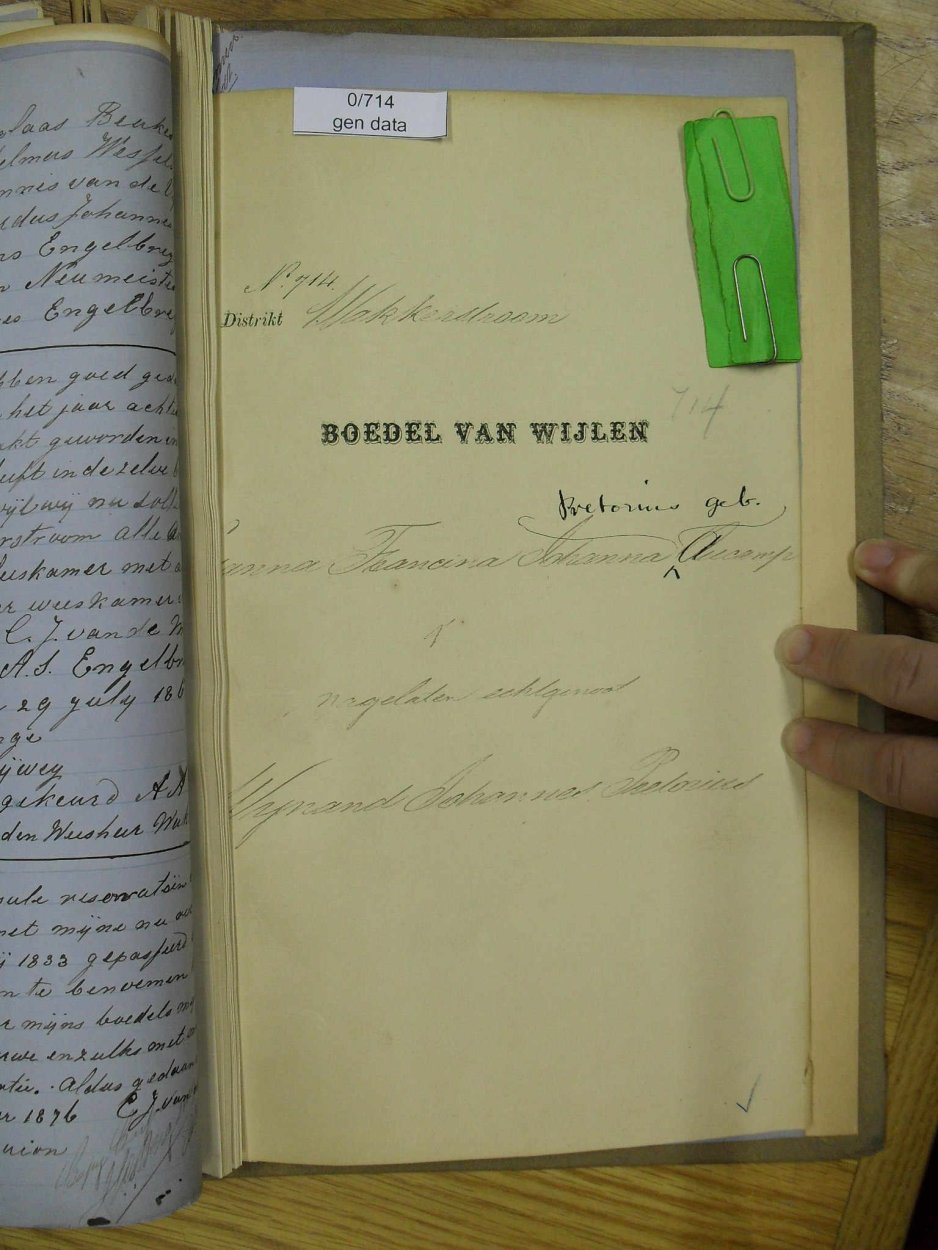 laas Beuke
elmus Wessel
nnis van de
udus Johannes
ns Engelbreg
n Neumeiste
es Engelbre
bben goed ged
het jaar acht
akt geworden in
uft in de zelve
wijl wij nu
rstroom alle
uskamer met
er weeskamer
C. J. van de
A.S. Engelbr
29 july 186
nge
gekeurd A A
den Weesheer Wak
met mijne nu
1833 gepasseerd
n te benoemen
r mijns boedels
enzulks met
ntie. Aldus gedaan
r 1876 C.J. van
union
0/714
gen data
No. 714
Distrikt Wakkerstroom
714
BOEDEL VAN WIJLEN
Pretorius geb.
anna Francina Johanna Aucamp
nagelaten echtgenoot
Wynand Johannes Pretorius